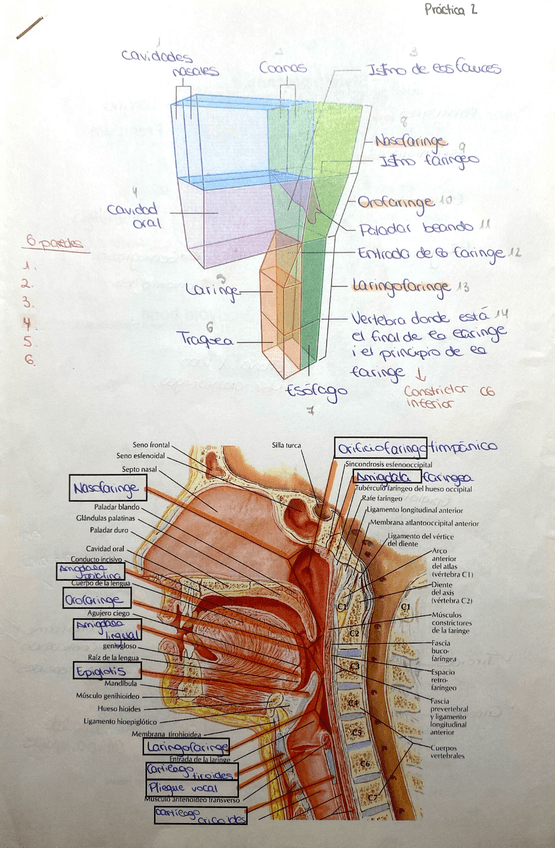 Práctica 2
1
cavidades
nasales
2
Coanas
3
Istmo de las fauces
8
Nasofaringe
9
Istmo faringeo
4
cavidad
oral
Orofaringe 10
Paladar blando 11
Entrada de la faringe 12
6 paredes
1.
2.
3.
4.
5.
6.
5
Laringe
Laringofaringe 13
6
Traquea
Vertebra donde está 14
el final de la laringe
i el principio de la
faringe
Constrictor C6
inferior
Esófago
7
Seno frontal
Seno esfenoidal
Septo nasal
Silla turca
Orificio faringo timpánico
Sincondrosis esfenooccipital
Amigdala faringea
Tubérculo faríngeo del hueso occipital
Rafe faríngeo
Ligamento longitudinal anterior
Membrana atlantooccipital anterior
Ligamento del vértice
del diente
Arco
anterior
del atlas
(vértebra C1)
Diente
del axis
(vértebra C2)
Músculos
constrictores
de la faringe
Fascia
buco-
faríngea
Espacio
retro-
faríngeo
Fascia
prevertebral
y ligamento
longitudinal
anterior
Cuerpos
vertebrales
Nasofaringe
Paladar blando
Glándulas palatinas
Paladar duro
Cavidad oral
Conducto incisivo
Amigdala
palatina
Cuerpo de la lengua
Orofaringe
Agujero ciego
Amigdala
lingual
geniogloso
Raíz de la lengua
Epiglotis
Mandíbula
Músculo genihioideo
Hueso hioides
Ligamento hioepiglótico
Membrana tirohioidea
Laringofaringe
Entrada de la laringe
Cartilago
tiroides
Pliegue vocal
Músculo aritenoideo transverso
Cartilago
cricoides
C1
C1
C2
C3
C4
C5
C6
C7